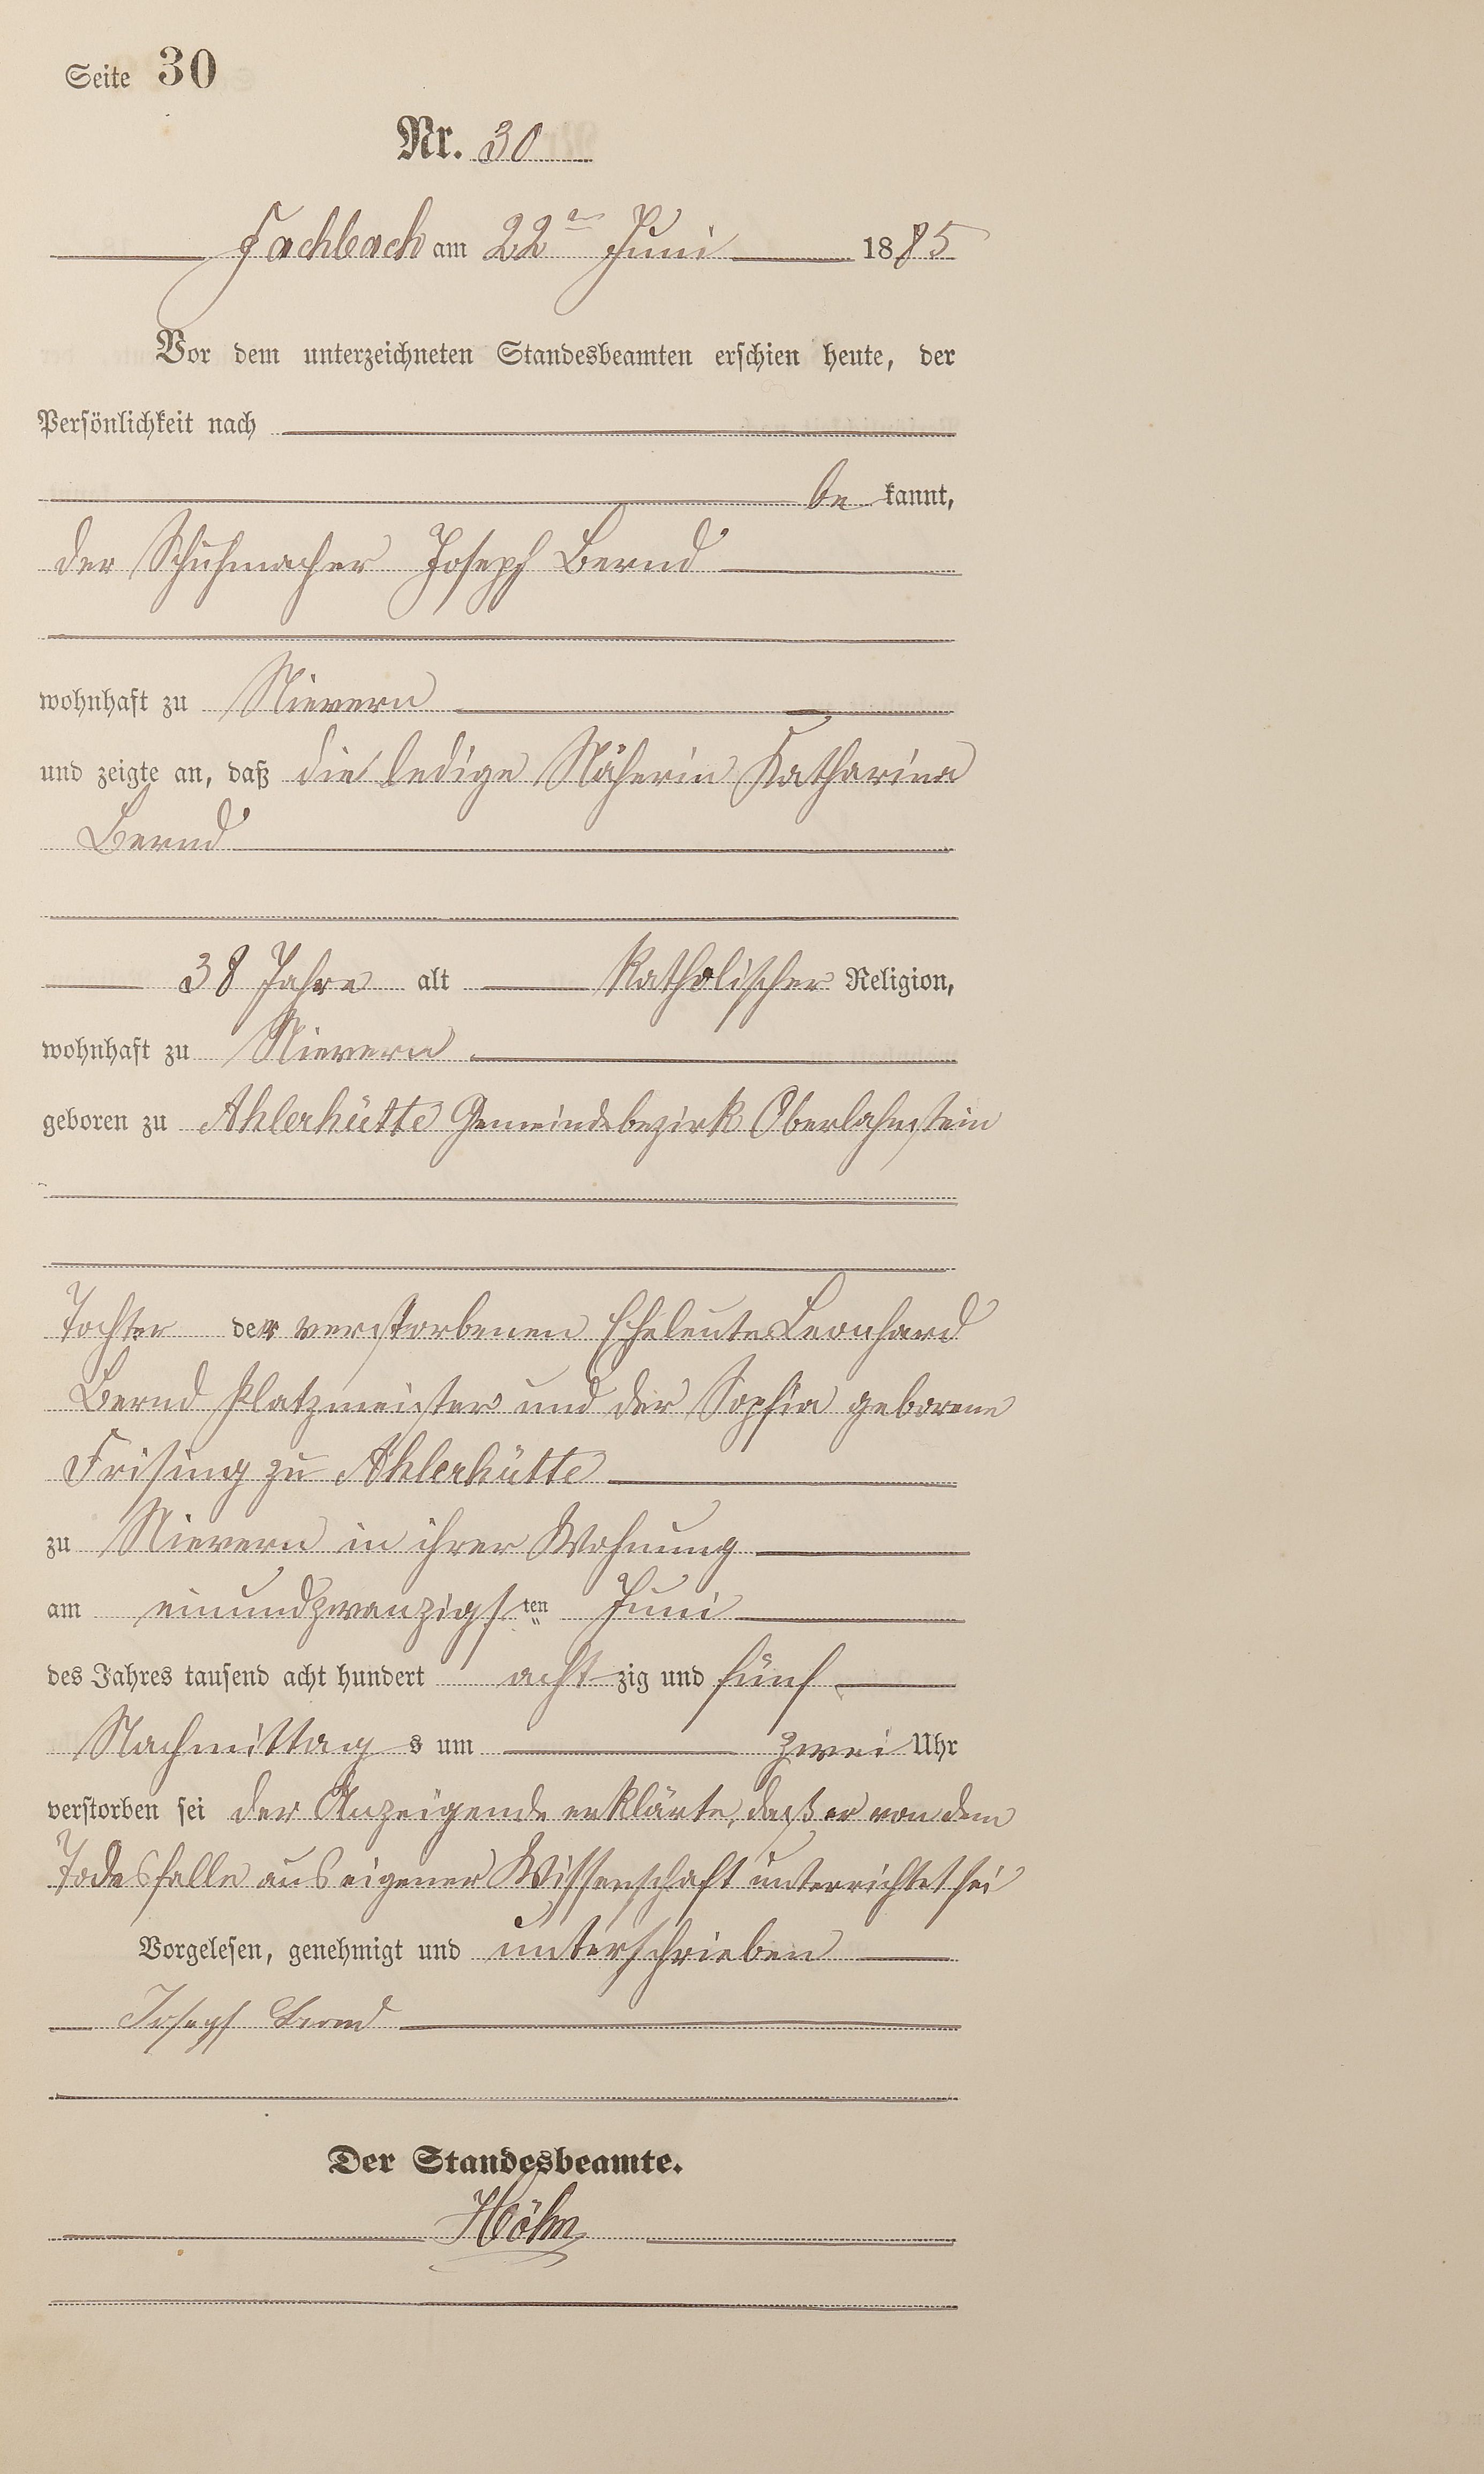 Seite 30
Nr. 30
Fachbach am 22ten Juni 1885
Vor dem unterzeichneten Standesbeamten erschien heute, der
Persönlichkeit nach
be kannt,
der Schuhmacher Joseph Bernd
wohnhaft zu Nievern
und zeigte an, daß die ledige Näherin Katharina
Bernd
38 Jahre alt katholischer Religion,
wohnhaft zu Nievern
geboren zu Ahlerhütte Gemeindebezirk Oberlahnstein
Tochter der verstorbenen Eheleute Leonhard
Bernd Platzmeister und der Sophia geborene
Frising zu Ahlerhütte
zu Nievern in ihrer Wohnung
am einundzwanzigsten Juni
des Jahres tausend acht hundert achtzig und fünf
Nachmittags um zwei Uhr
verstorben sei der Anzeigende erklärte, daß er von dem
Todesfalle aus eigener Wissenschaft unterrichtet sei
Vorgelesen, genehmigt und unterschrieben
Joseph Bernd
Der Standesbeamte.
Höhn